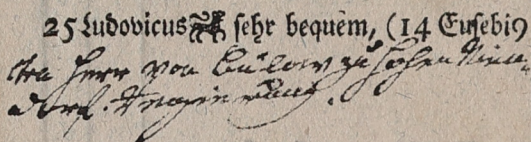 25 Ludovicus sehr bequem, (14 Eusebi9
Herr von Bülow zu hohen Nien-
dorf.